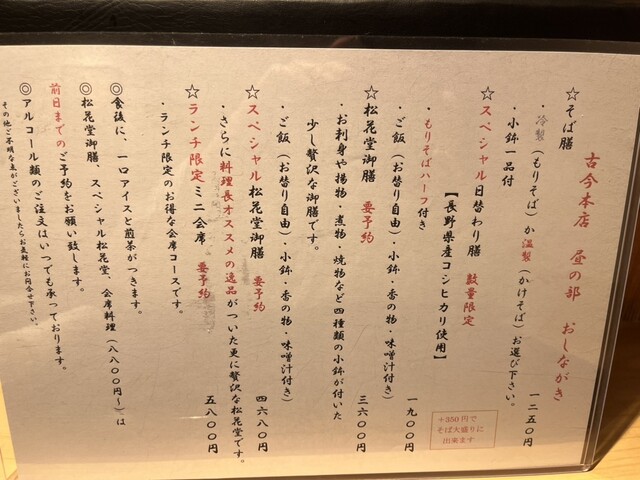 古今本店　昼の部　おしながき
☆そば膳　一二五〇円
・冷製（もりそば）か温製（かけそば）お選び下さい。
・小鉢一品付
☆スペシャル日替わり膳　数量限定
【長野県産コシヒカリ使用】
・もりそばハーフ付き
・ご飯（お替り自由）・小鉢・香の物・味噌汁付き）　一九〇〇円
+350円で
そば大盛りに
出来ます
☆松花堂御膳　要予約　三六〇〇円
・お刺身や揚物・煮物・焼物など四種類の小鉢が付いた
少し贅沢な御膳です。
・ご飯（お替り自由）・小鉢・香の物・味噌汁付き）
☆スペシャル松花堂御膳　要予約　四六八〇円
・さらに料理長オススメの逸品がついた更に贅沢な松花堂です。
☆ランチ限定ミニ会席　要予約　五八〇〇円
・ランチ限定のお得な会席コースです。
◎食後に、一口アイスと煎茶がつきます。
◎松花堂御膳、スペシャル松花堂、会席料理（八八〇〇円〜）は
前日までのご予約をお願い致します。
◎アルコール類のご注文はいつでも承っております。
その他ご不明な点がございましたらお気軽にお問合せ下さい。